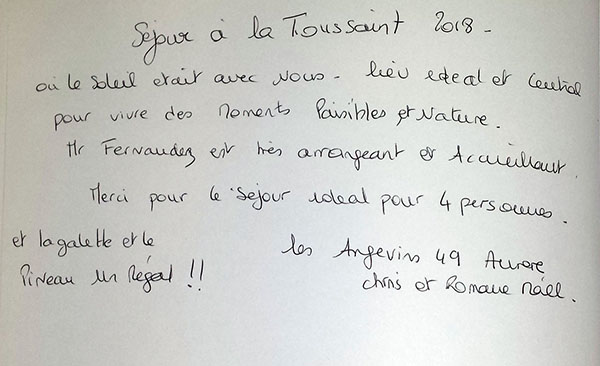 Séjour à la Toussaint 2018 -
où le soleil etait avec Nous - lieu edeal et Central
pour vivre des Moments Paisibles et Nature.
Mr Fernandez est très arrangeant et Accueillant.
Merci pour le Sejour ideal pour 4 personnes.
et la galette et le
Pineau un Régal !!
les Angevins 49 Aurore
chris et Romane Naël.